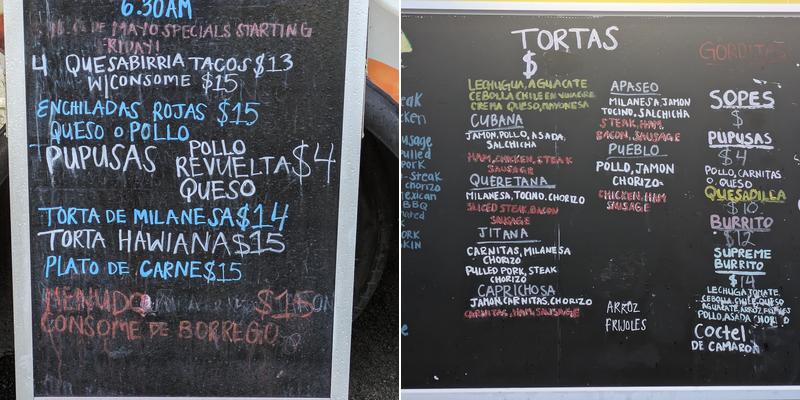 6:30AM
DE MAYO SPECIALS STARTING
FRIDAY!
4 QUESABIRRIA TACOS $13
W/CONSOME $15
ENCHILADAS ROJAS $15
QUESO O POLLO
PUPUSAS POLLO
REVUELTA $4
QUESO
TORTA DE MILANESA $14
TORTA HAWIANA $15
PLATO DE CARNE $15
MENUDO $15
CONSOME DE BORREGO
TORTAS
$
LECHUGUA, AGUACATE
CEBOLLA CHILE EN VINAGRE
CREMA QUESO, MAYONESA
CUBANA
JAMON, POLLO, ASADA,
SALCHICHA
HAM, CHICKEN, STEAK
SAUSAGE
QUERETANA
MILANESA, TOCINO, CHORIZO
SLICED STEAK, BACON
SAUSAGE
JITANA
CARNITAS, MILANESA
CHORIZO
PULLED PORK, STEAK
CHORIZO
CAPRICHOSA
JAMON, CARNITAS, CHORIZO
CARNITAS, HAM, SAUSAGE
APASEO
MILANESA, JAMON
TOCINO, SALCHICHA
STEAK, HAM,
BACON, SAUSAGE
PUEBLO
POLLO, JAMON
CHORIZO
CHICKEN, HAM
SAUSAGE
ARROZ
FRIJOLES
GORDITAS
SOPES
$
PUPUSAS
$4
POLLO, CARNITAS
O. QUESO
QUESADILLA
$10
BURRITO
$12
SUPREME
BURRITO
$14
LECHUGA TOMATE
CEBOLLA, CHILE, QUESO
AGUACATE ARROZ FRIJOLES
POLLO, ASADA
Coctel
DE CAMARON